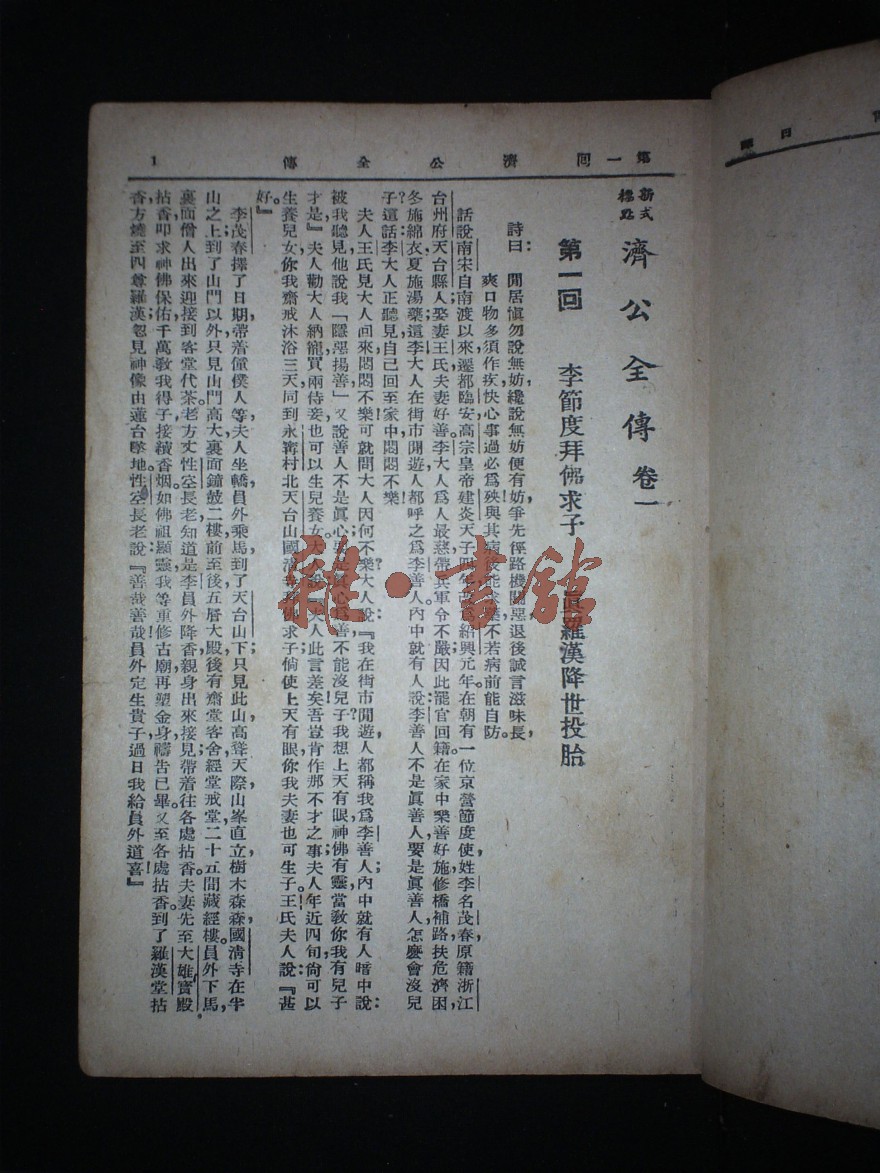 第一回 濟公全傳 1
新式標點
濟公全傳卷一
第一回 李節度拜佛求子 眞羅漢降世投胎
詩曰：閒居愼勿說無妨，纔說無妨便有妨，爭先徑路機關惡，退後誠言滋味長，
爽口物多須作疾，快心事過必爲殃，與其病後能求藥，不若病前能自防。
話說南宋自南渡以來，遷都臨安，高宗皇帝建炎天子四年，改爲紹興元年。在朝有一位京營節度使，姓李名茂春，原籍浙江
台州府天台縣人；娶妻王氏，夫妻好善。李大人爲人最慈，帶兵軍令不嚴，因此罷官回籍，在家中樂善好施，修橋補路，扶危濟困，
冬施綿衣，夏施湯藥，這李大人在街市閒遊，人都呼之爲李善人。內中就有人說：李善人不是眞善人，要是眞善人，怎麼會沒兒
子？這話李大人正聽見，自己回至家中，悶悶不樂！
夫人王氏見大人回來悶悶不樂，可就問大人因何不樂？大人說：『我在街市閒遊，人都稱我爲李善人；內中就有人暗中說：
被我聽見，他說我「隱惡揚善」又說善人不是眞心，要是眞心爲善，不能沒兒子？我想上天有眼，神佛有靈，當敎你我有兒子
才是』夫人勸大人納寵，買兩侍妾，也可以生兒養女。大人說：『夫人此言差矣！吾豈肯作那不才之事，夫人年近四旬，尙可以
生養兒女，你我齋戒沐浴三天，同到永寗村北天台山國淸寺拜佛求子，倘使上天有眼，你我夫妻也可生子。』王氏夫人說：『甚
好。』
李茂春擇了日期，帶着僮僕人等，夫人坐轎，員外乘馬，到了天台山下，只見此山高聳天際，山峯直立，樹木森森，國淸寺在半
山之上；到了山門以外，只見山門高大，裏面鐘鼓二樓，前至後五層大殿，後有齋堂客舍，經堂戒堂，二十五間藏經樓。員外下馬，
裏面僧人出來迎接，到客堂代茶。老方丈性空長老，知道是李員外降香，親身出來接見，帶着往各處拈香，夫妻先至大雄寶殿
拈香，叩求神佛保佑，千萬敎我得子，接續香烟。如佛祖顯靈，我等重修古廟，再塑金身。禱告已畢，又至各處拈香。到了羅漢堂拈
香，方燒至四尊羅漢，忽見神像由蓮台墜地。性空長老說：『善哉善哉！員外定生貴子，過日我給員外道喜』
雜·書館